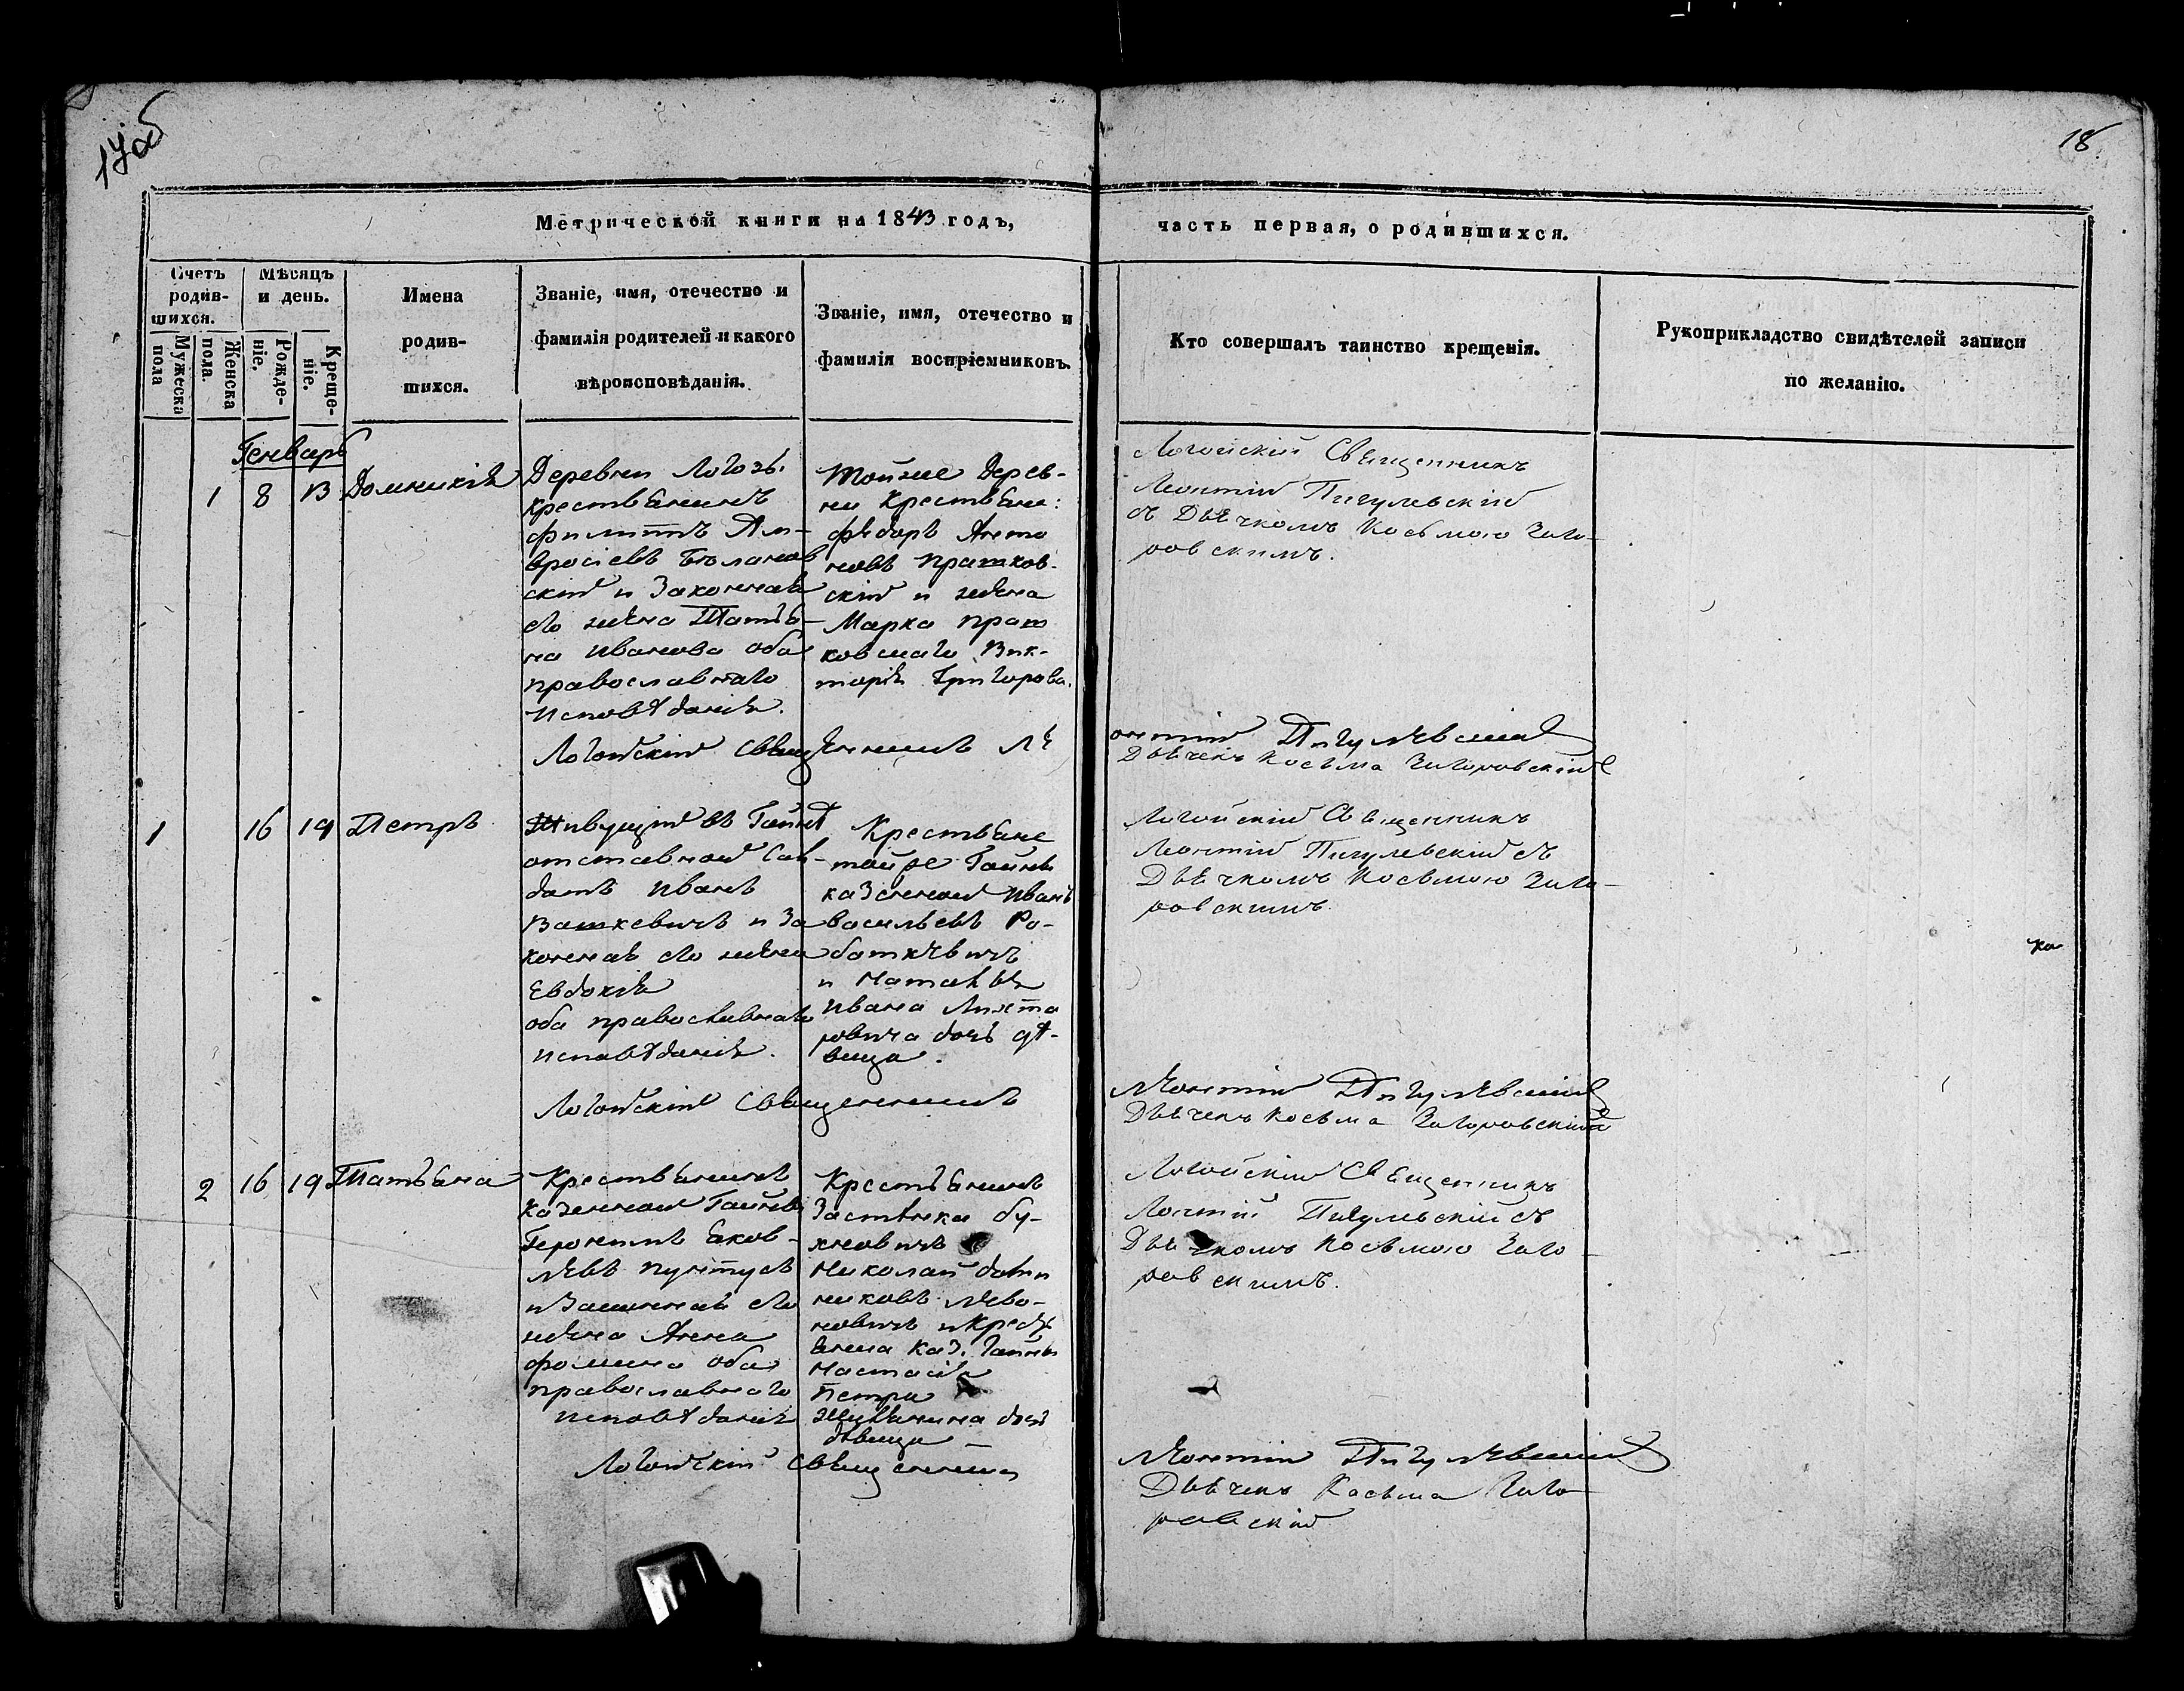 17об
18
Метрической книги на 1843 годъ,
часть первая, о родившихся.
Счетъ родив-
шихся.
Мужеска пола
Женска пола.
Мѣсяцъ и день.
Рожде-
ніе.
Креще-
ніе.
Имена
родив-
шихся.
Званіе, имя, отечество и
фамилія родителей и какого
вѣроисповѣданія.
Званіе, имя, отечество и
фамилія воспріемниковъ.
Кто совершалъ таинство крещенія.
Рукоприкладство свидѣтелей записи
по желанію.
Генварь
1 8 13 Домникія
Деревни Логозы
крестьянинъ
филиппъ Ам-
вросіевъ
скій и Законная
его жена Татья-
на Иванова оба
православнаго
исповѣданія.
Тойже дерев-
ни крестьяне:
федоръ Анто
новъ Пратков-
скій и жена
Марка Прат
ковскаго Вик-
торія Григорова.
Логойскій Священникъ
Леонтій Пигулевскій
съ Дьячкомъ Косьмою Заго-
ровскимъ.
Логойскій Священникъ Ле
онтій Пигулевскій
Дьячекъ Косьма Загоровскій
1 16 19 Петръ
Живущій въ Гайнѣ
отставной Сол-
датъ Иванъ
Ваткевичъ и За
конная его жена
Евдокія
оба православнаго
исповѣданія.
Крестьяне
тойже Гайны
казенной Иванъ
Васильевъ Ро-
баткевичъ
и Наталья
Ивана
ровича дочь дѣ-
вица.
Логойскій Священникъ
Леонтій Пигулевскій съ
Дьячкомъ Косьмою Заго-
ровскимъ.
Логойскій Священникъ
Леонтій Пигулевскій
Дьячекъ Косьма Загоровскій
2 16 19 Татьяна
Крестьянинъ
казенной Гайны
Геронимъ Яков-
левъ Пунтусъ
и Законная его
жена Анна
фомина оба
православнаго
исповѣданія
Крестьянинъ
Застѣнка Бу-
хновичъ
Николай
никовъ Лево-
новичъ и крест
янка каз. Гайны
Настасія
Петра
дочь
дѣвица
Логойскій Священникъ
Леонтій Пигулевскій съ
Дьячкомъ Косьмою Заго-
ровскимъ.
Логойскій Священникъ
Леонтій Пигулевскій
Дьячекъ Косьма Заго-
ровскій